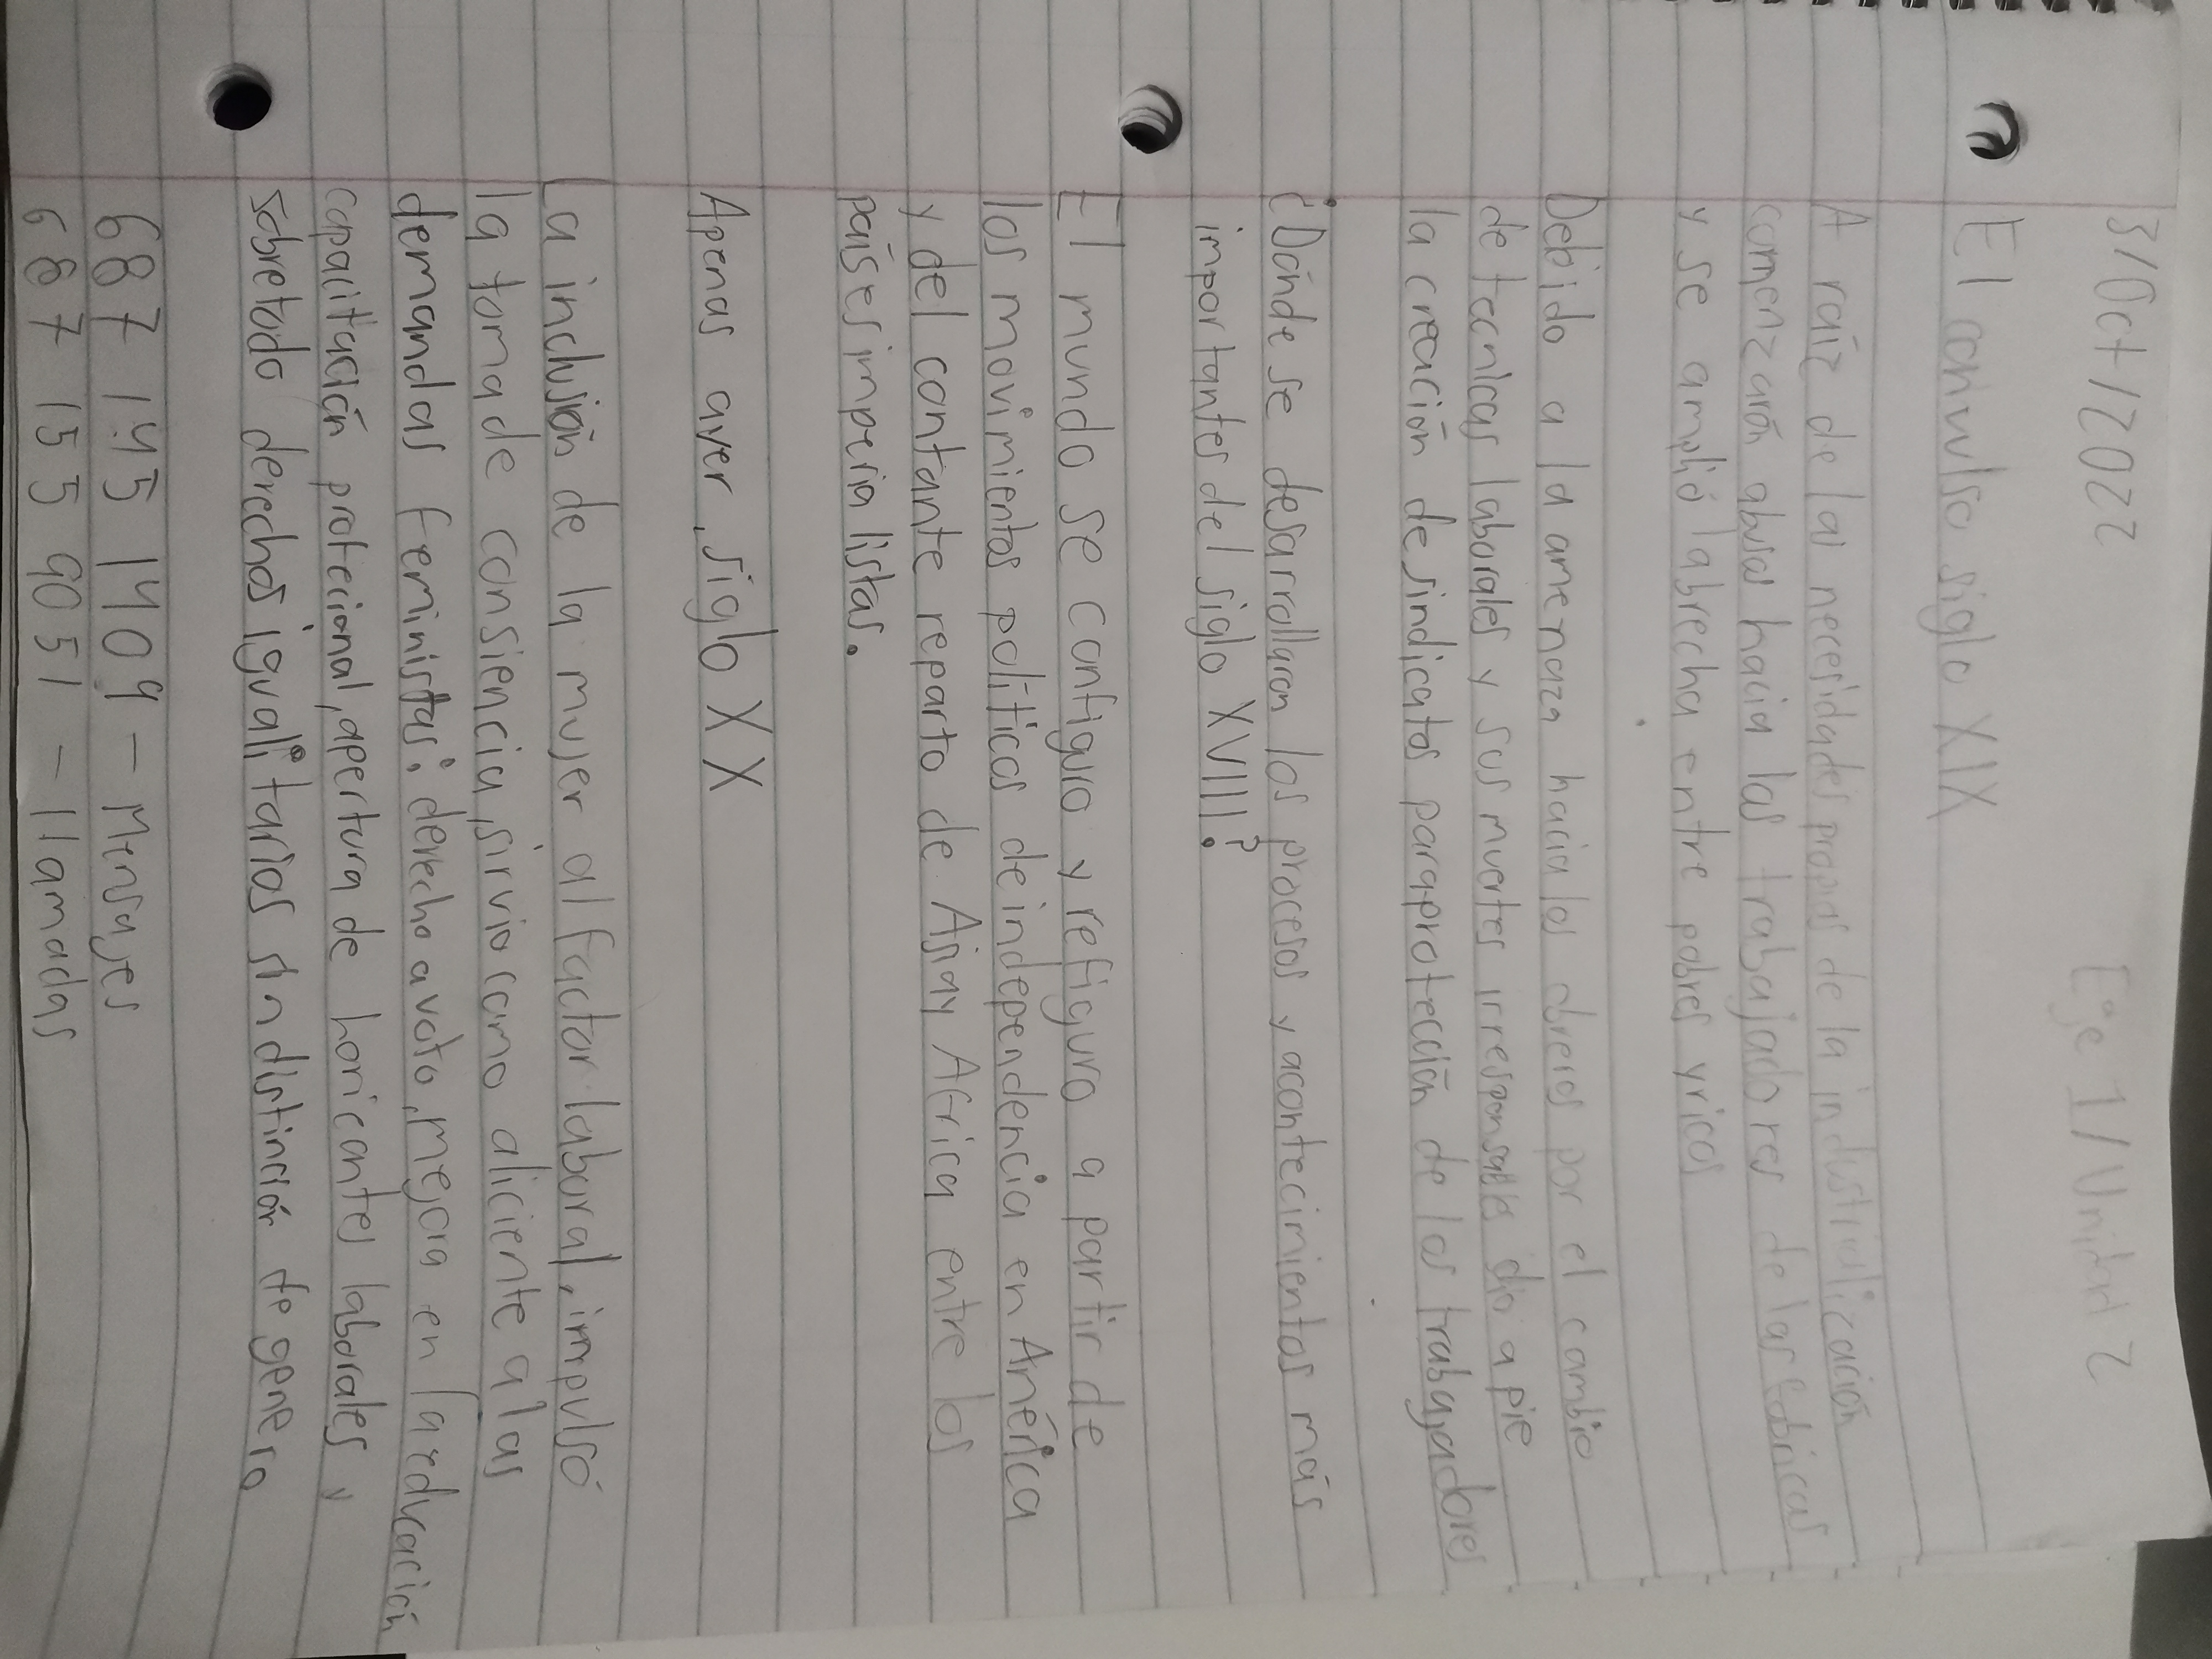 3/Oct/2022 Eje 1/Unidad 2
El convulso siglo XIX
A raíz de las necesidades propias de la industrialización
comenzarón abusos hacia los trabajadores de las fabricas
y se amplió la brecha entre pobres y ricos
Debido a la amenaza hacia los obreros por el cambio
de tecnicas laborales y sus muertes irresponsables dio a pie
la creación de sindicatos para protección de los trabajadores
¿Dónde se desarrollaron los procesos y acontecimientos más
importantes del siglo XVIII?
El mundo se configuro y refiguro a partir de
los movimientos politicos de independencia en América
y del contante reparto de Asia y Africa entre los
países imperialistas.
Apenas ayer, siglo XX
La inclusión de la mujer al factor laboral, impulsó
la toma de consiencia, sirvio como aliciente a las
demandas feministas: derecho a voto, mejora en la educación
capacitación profecional, apertura de horicontes laborales y
sobretodo derechos igualitarios sin distinción de genero
687 145 1409 - Mensajes
687 155 9051 - llamadas